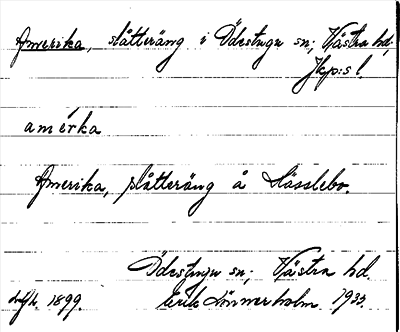 Amerika, slåtteräng i Ödestugu sn; Västra hd;
Jkp:s l.
amérka
Amerika, slåtteräng å Hässlebo.
Ödestugu sn; Västra hd.
1899. Erik Linnerholm. 1933.